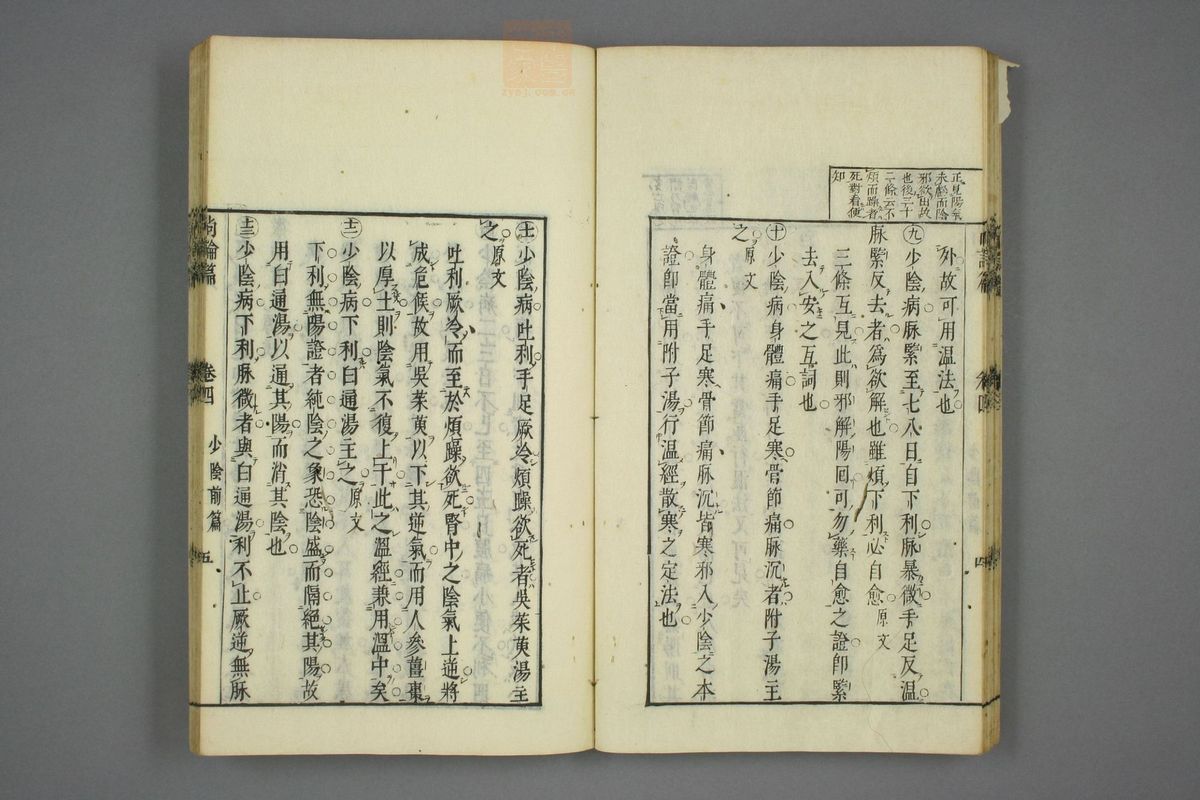 正見陽氣
未虧而陰
邪欲出故
也後三十
二條云不
煩而躁者
死對看便
知
外故可用溫法也
㊈少陰病脉緊至七八日自下利脉暴微手足反溫
脉緊反去者爲欲解也雖煩下利必自愈原文
三條互見此則邪解陽回可勿藥自愈之證卽緊
去人安之互詞也
㊉少陰病身體痛手足寒骨節痛脉沉者附子湯主
之原文
身體痛手足寒骨節痛脉沉皆寒邪入少陰之本
證卽當用附子湯行溫經散寒之定法也
四
十一少陰病吐利手足厥冷煩躁欲死者吳茱萸湯主
之原文
吐利厥冷而至於煩躁欲死腎中之陰氣上逆將
成危候故用吳茱萸以下其逆氣而用人參薑棗
以厚土則陰氣不復上干此之溫經兼用溫中矣
十二少陰病下利白通湯主之原文
下利無陽證者純陰之象恐陰盛而隔絕其陽故
用白通湯以通其陽而消其陰也
十三少陰病下利脉微者與白通湯利不止厥逆無脉
尚論篇 卷四 少陰前篇 五